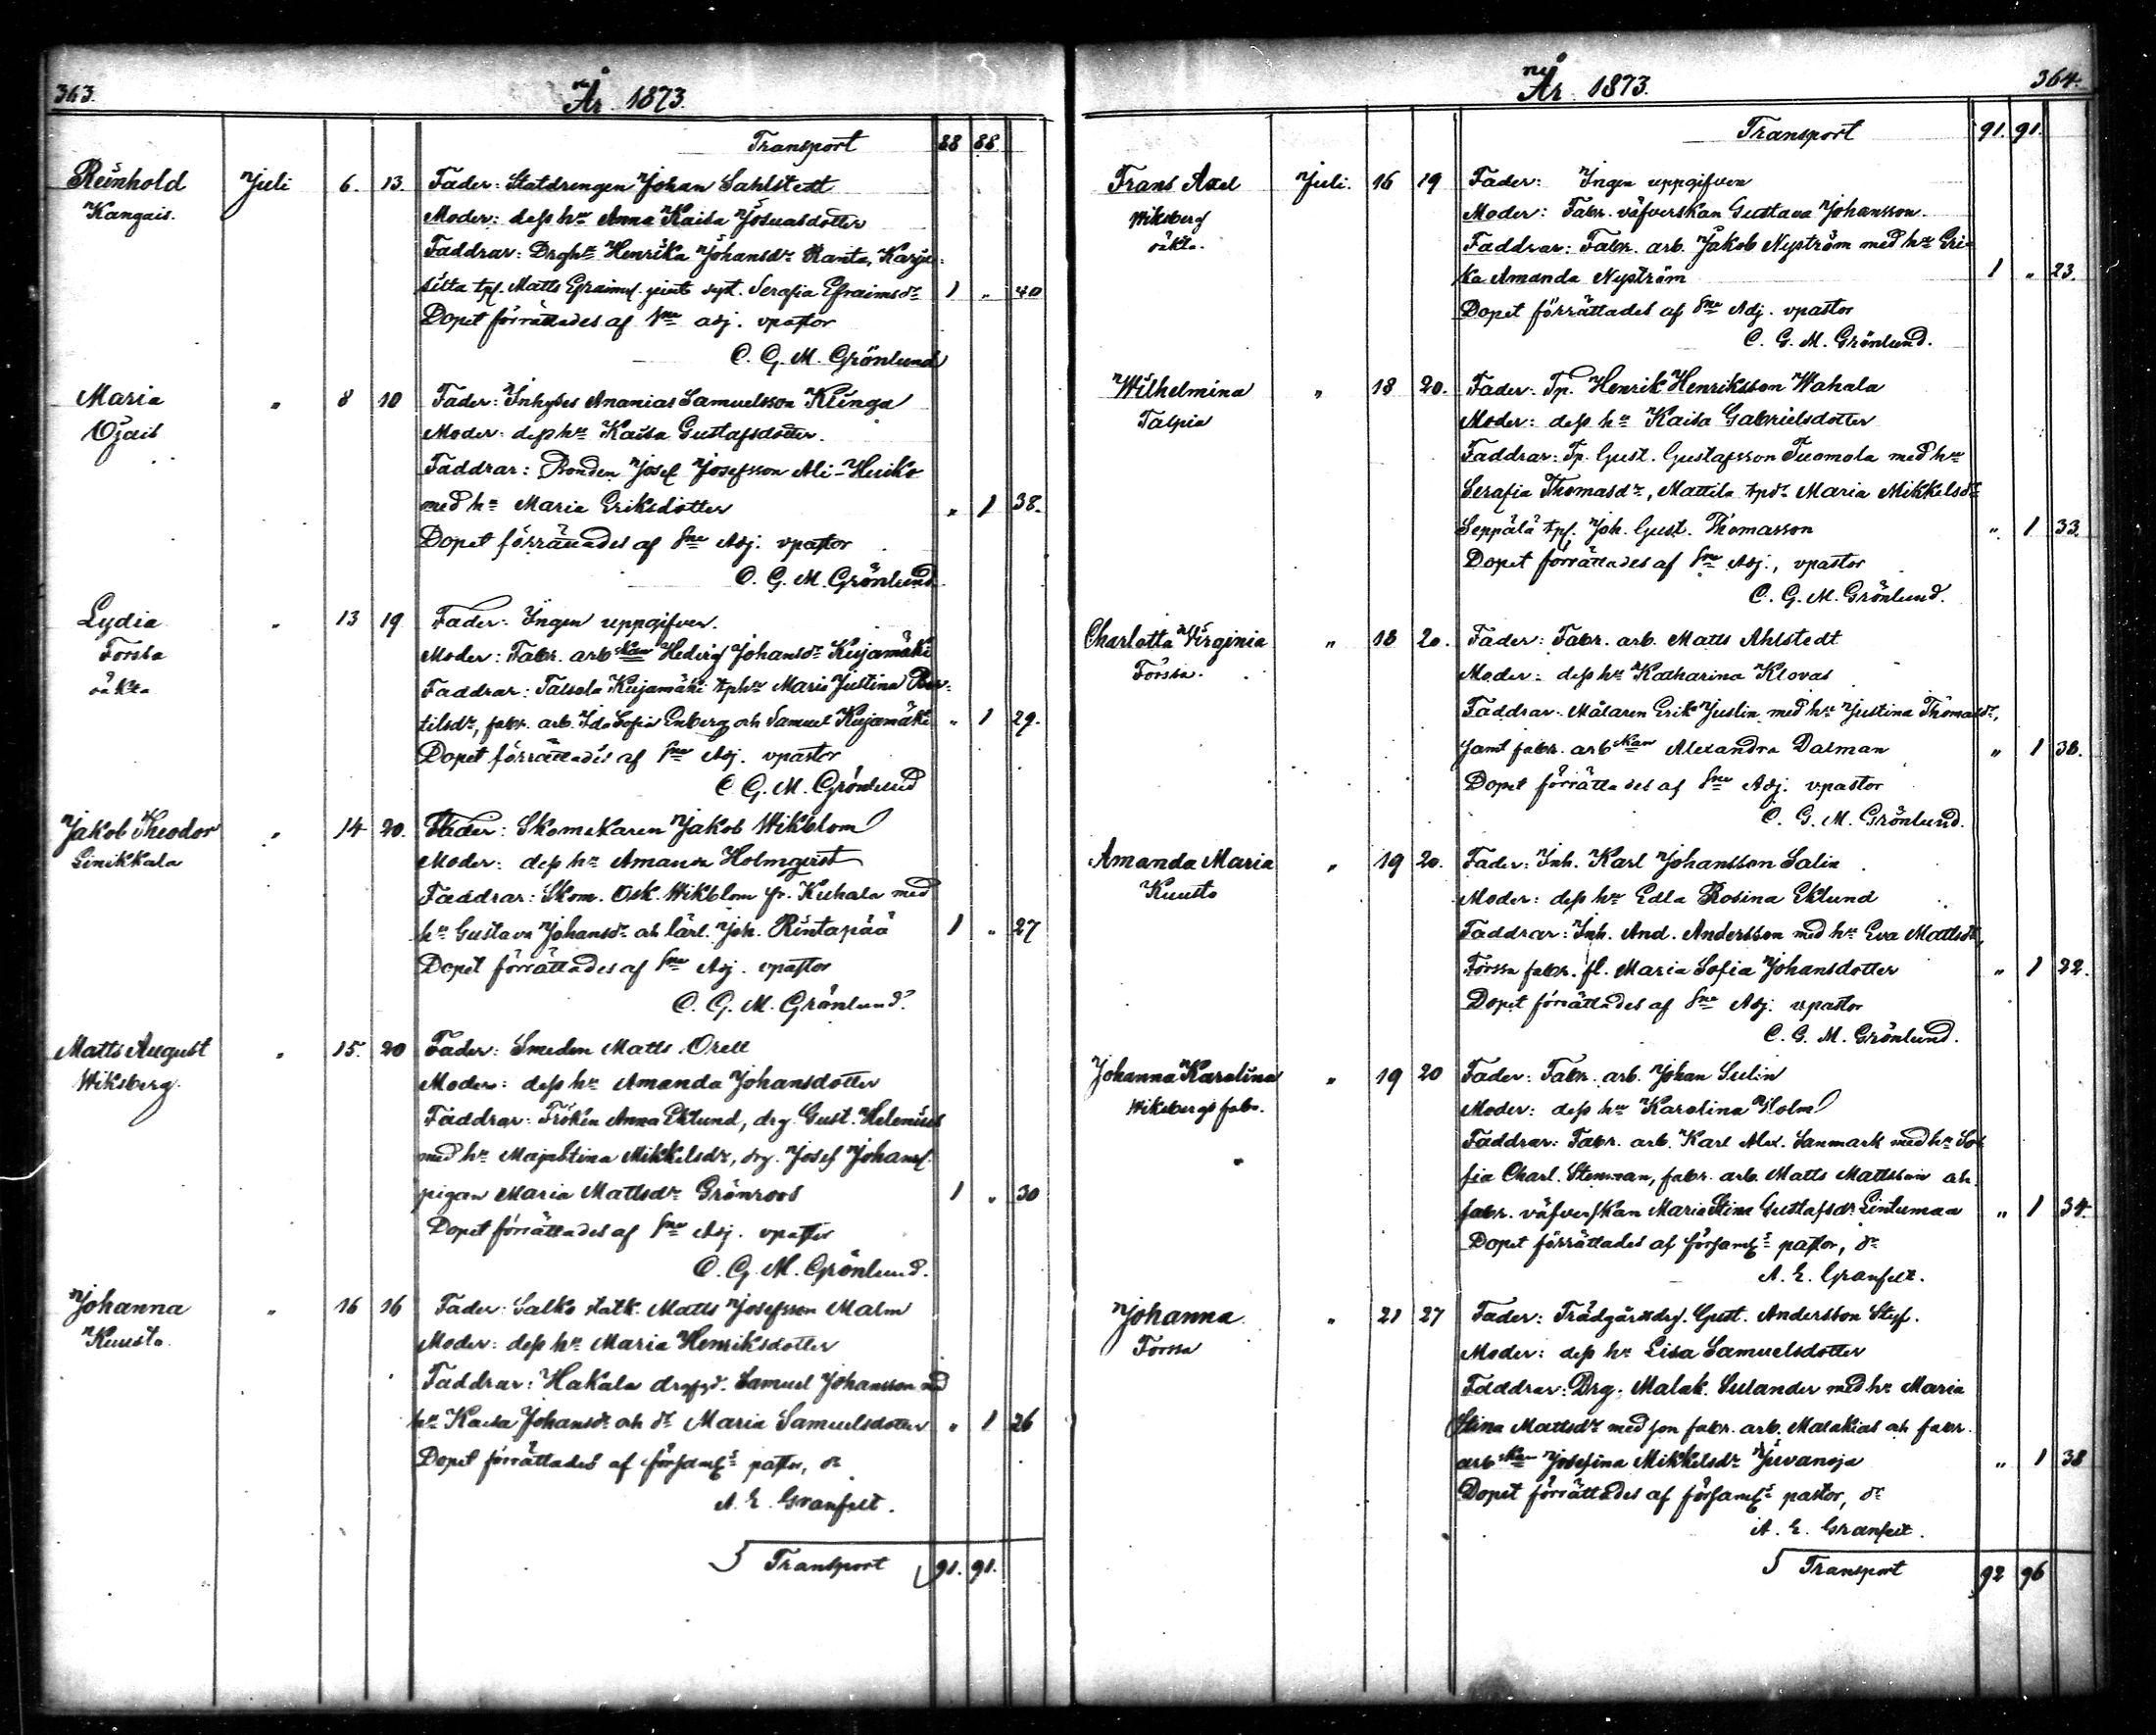 363.
År 1873.
Transport 88 88.
Reinhold Juli 6. 13. Fader: Statdrengen Johan Sahlstedt
Kangais. Moder: dess hu Anna Kaisa Josuasdotter
Faddrar: Drgh. Henrika Johansdr Ranta, Karju-
silta tps. Matts Efraims. Serafia Efraimsdr 1 " 40
Dopet förrättades af adj. vpastor
C. G. M. Grönlund
Maria " 8 10 Fader: Inhyses Ananias Samuelsson Klinga
Ojais Moder: dess hu Kaisa Gustafsdotter.
Faddrar: Bonden Josef Josefsson Ali-Heiko
med hu Maria Eriksdotter " 1 38.
Dopet förrättades af Adj. vpastor
C. G. M. Grönlund
Lydia " 13 19 Fader: Ingen uppgifven.
Forssa Moder: Fabr. arbskan Hedvig Johansdr Kujamäki
oäkta Faddrar: Tassola Kujamäki tphu Maria Justina Ber-
tilsdr, fabr. arb. Ida Sofia Enberg och Samuel Kujamäki " 1 29.
Dopet förrättades af Adj. vpastor
C. G. M. Grönlund
Jakob Theodor " 14 20. Fader: Skomakaren Jakob Wikblom
Linikkala Moder: dess hu Amanda Holmqvist
Faddrar: Skom. Osk. Wikblom fr. Kuhala med
hu Gustava Johansdr och lärl. Joh. Rintapää 1 " 27
Dopet förrättades af Adj. vpastor
C. G. M. Grönlund.
Matts August " 15. 20 Fader: Smeden Matts Orell
Wiksberg. Moder: dess hu Amanda Johansdotter
Faddrar: Fröken Anna Eklund, drg. Gust. Helenius
med hu Maja Stina Mikkelsdr, drg. Josef Johanss.
pigan Maria Mattsdr Grönroos 1 " 30
Dopet förrättades af Adj. vpastor
C. G. M. Grönlund.
Johanna " 16 16 Fader: Salko statk. Matts Josefsson Malm
Kuusto. Moder: dess hu Maria Henriksdotter
Faddrar: Hakala Samuel Johansson med
hu Kaisa Johansdr och dr Maria Samuelsdotter " 1 26
Dopet förrättades af församls pastor, dr
A. E. Granfelt.
Transport 91. 91.
364.
År 1873.
Transport 91. 91.
Frans Axel Juli. 16 19 Fader: Ingen uppgifven
Wiksberg Moder: Fabr. väfverskan Gustava Johansson.
oäkta. Faddrar: Fabr. arb. Jakob Nyström med hu Eri-
ka Amanda Nyström 1 " 23.
Dopet förrättades af Adj. vpastor
C. G. M. Grönlund.
Wilhelmina " 18 20. Fader: Tp. Henrik Henriksson Wahala
Talpia Moder: dess hu Kaisa Gabrielsdotter
Faddrar: Tp. Gust. Gustafsson Tuomola med hu
Serafia Thomasdr, Mattila tpdr Maria Mikkelsdr
Seppälä tps. Joh. Gust. Thomasson " 1 33.
Dopet förrättades af Adj., vpastor
C. G. M. Grönlund.
Charlotta Virginia " 18 20. Fader: Fabr. arb. Matts Ahlstedt
Forssa. Moder: dess hu Katharina Klovas
Faddrar: Målaren Erik Juslin med hu Justina Thomasdr,
samt fabr. arbskan Alexandra Dalman " 1 38.
Dopet förrättades af Adj. vpastor
C. G. M. Grönlund.
Amanda Maria " 19 20. Fader: Inh. Karl Johansson Salin
Kuusto Moder: dess hu Edla Rosina Eklund
Faddrar: Inh. And. Andersson med hu Eva Mattsdr,
Forssa fabr. fl. Maria Sofia Johansdotter " 1 22.
Dopet förrättades af Adj. vpastor
C. G. M. Grönlund.
Johanna Karolina " 19 20 Fader: Fabr. arb. Johan Sulin
Wiksbergs fabr. Moder: dess hu Karolina Holm
Faddrar: Fabr. arb. Karl Alex. Sanmark med hu So-
fia Charl. Stenman, fabr. arb. Matts Mattsson och
fabr. väfverskan Maria Stina Gustafsdr Lintumaa " 1 34.
Dopet förrättades af församls pastor, dr
A. E. Granfelt.
Johanna " 21 27 Fader: Trädgårdsdrg. Gust. Andersson
Forssa Moder: dess hu Lisa Samuelsdotter
Faddrar: Drg. Malak. Sulander med hu Maria
Stina Mattsdr med son fabr. arb. Malakias och fabr.
arbskan Josefina Mikkelsdr Juvanoja " 1 38
Dopet förrättades af församls pastor, dr
A. E. Granfelt.
Transport 92 96